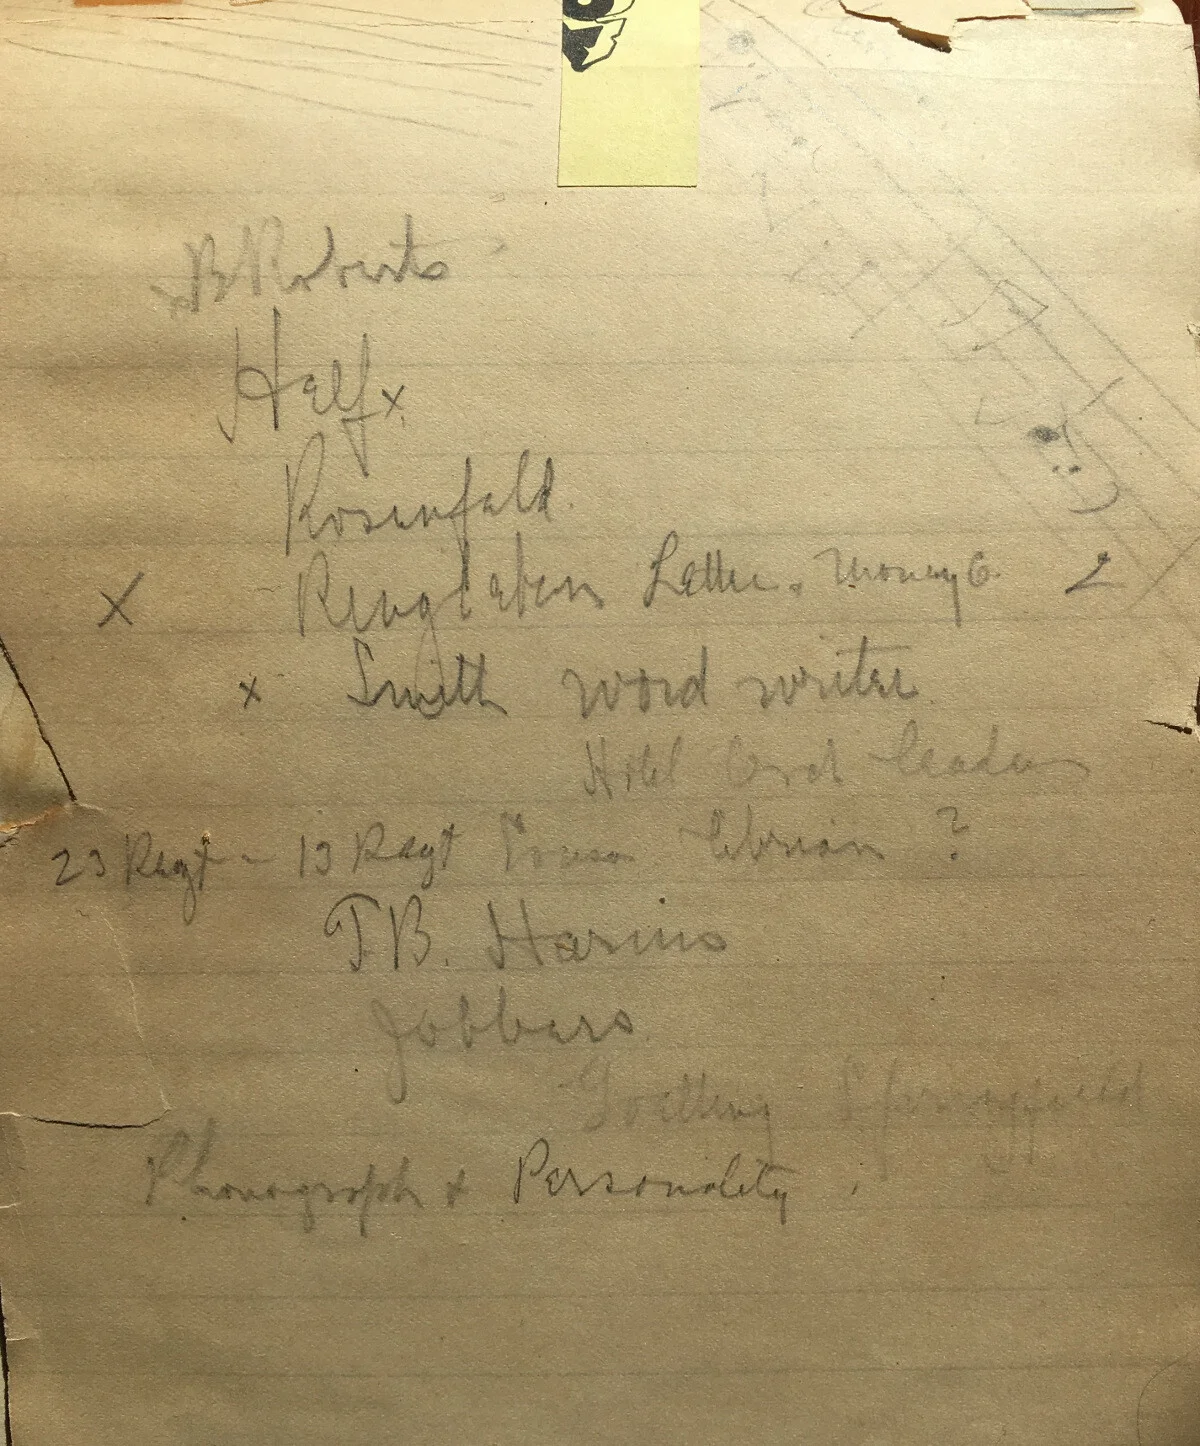 x B Roberts
Helf x
Rosenfeld.
X Ringleben Letter. Money 6.
x Smith word writer
Hotel Orch Leaders
23 Regt - 13 Regt Sousa ?
T.B. Harms
Jobbers
Goetting Springfield
Phonograph + Personality